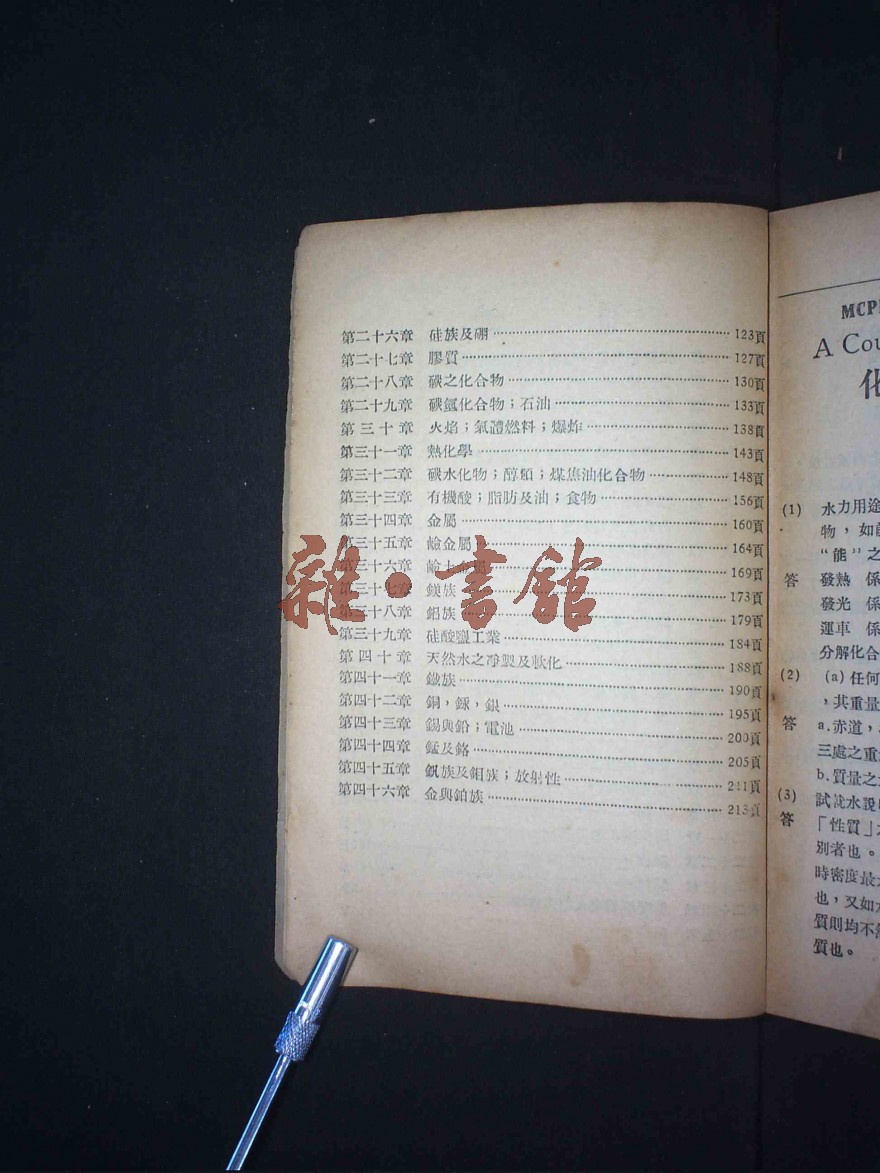 第二十六章 硅族及硼 123頁
第二十七章 膠質 127頁
第二十八章 碳之化合物 130頁
第二十九章 碳氫化合物；石油 133頁
第三十章 火焰；氣體燃料；爆炸 138頁
第三十一章 熱化學 143頁
第三十二章 碳水化物；醇類；煤焦油化合物 148頁
第三十三章 有機酸；脂肪及油；食物 156頁
第三十四章 金屬 160頁
第三十五章 鹼金屬 164頁
第三十六章 169頁
第三十七章 鎂族 173頁
第三十八章 鋁族 179頁
第三十九章 硅酸鹽工業 184頁
第四十章 天然水之淨製及軟化 188頁
第四十一章 鐵族 190頁
第四十二章 銅，銾，銀 195頁
第四十三章 錫與鉛；電池 200頁
第四十四章 錳及鉻 205頁
第四十五章 族及鉬族；放射性 211頁
第四十六章 金與鉑族 213頁
雜·書館
MCP
A Cou
化
(1) 水力用途
物，如
“能”之
答 發熱 係
發光 係
運車 係
分解化合
(2) (a)任何
，其重量
答 a.赤道，
三處之重
b.質量之
(3) 試就水說
答 「性質」
別者也。
時密度最
也，又如
質則均不
質也。